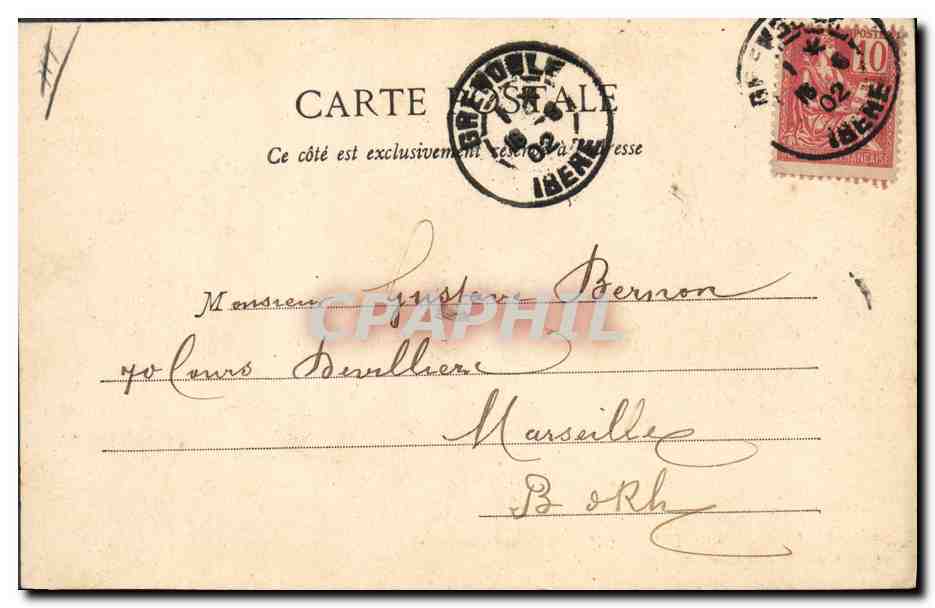 CARTE POSTALE
Ce côté est exclusivement réservé à l'adresse
GRENOBLE
16 - 6
02
ISERE
POSTES
10
16
02
ISERE
FRANÇAISE
Monsieur Gustave Bernon
70 Cours Devilliers
Marseille
B d Rh
CPAPHIL